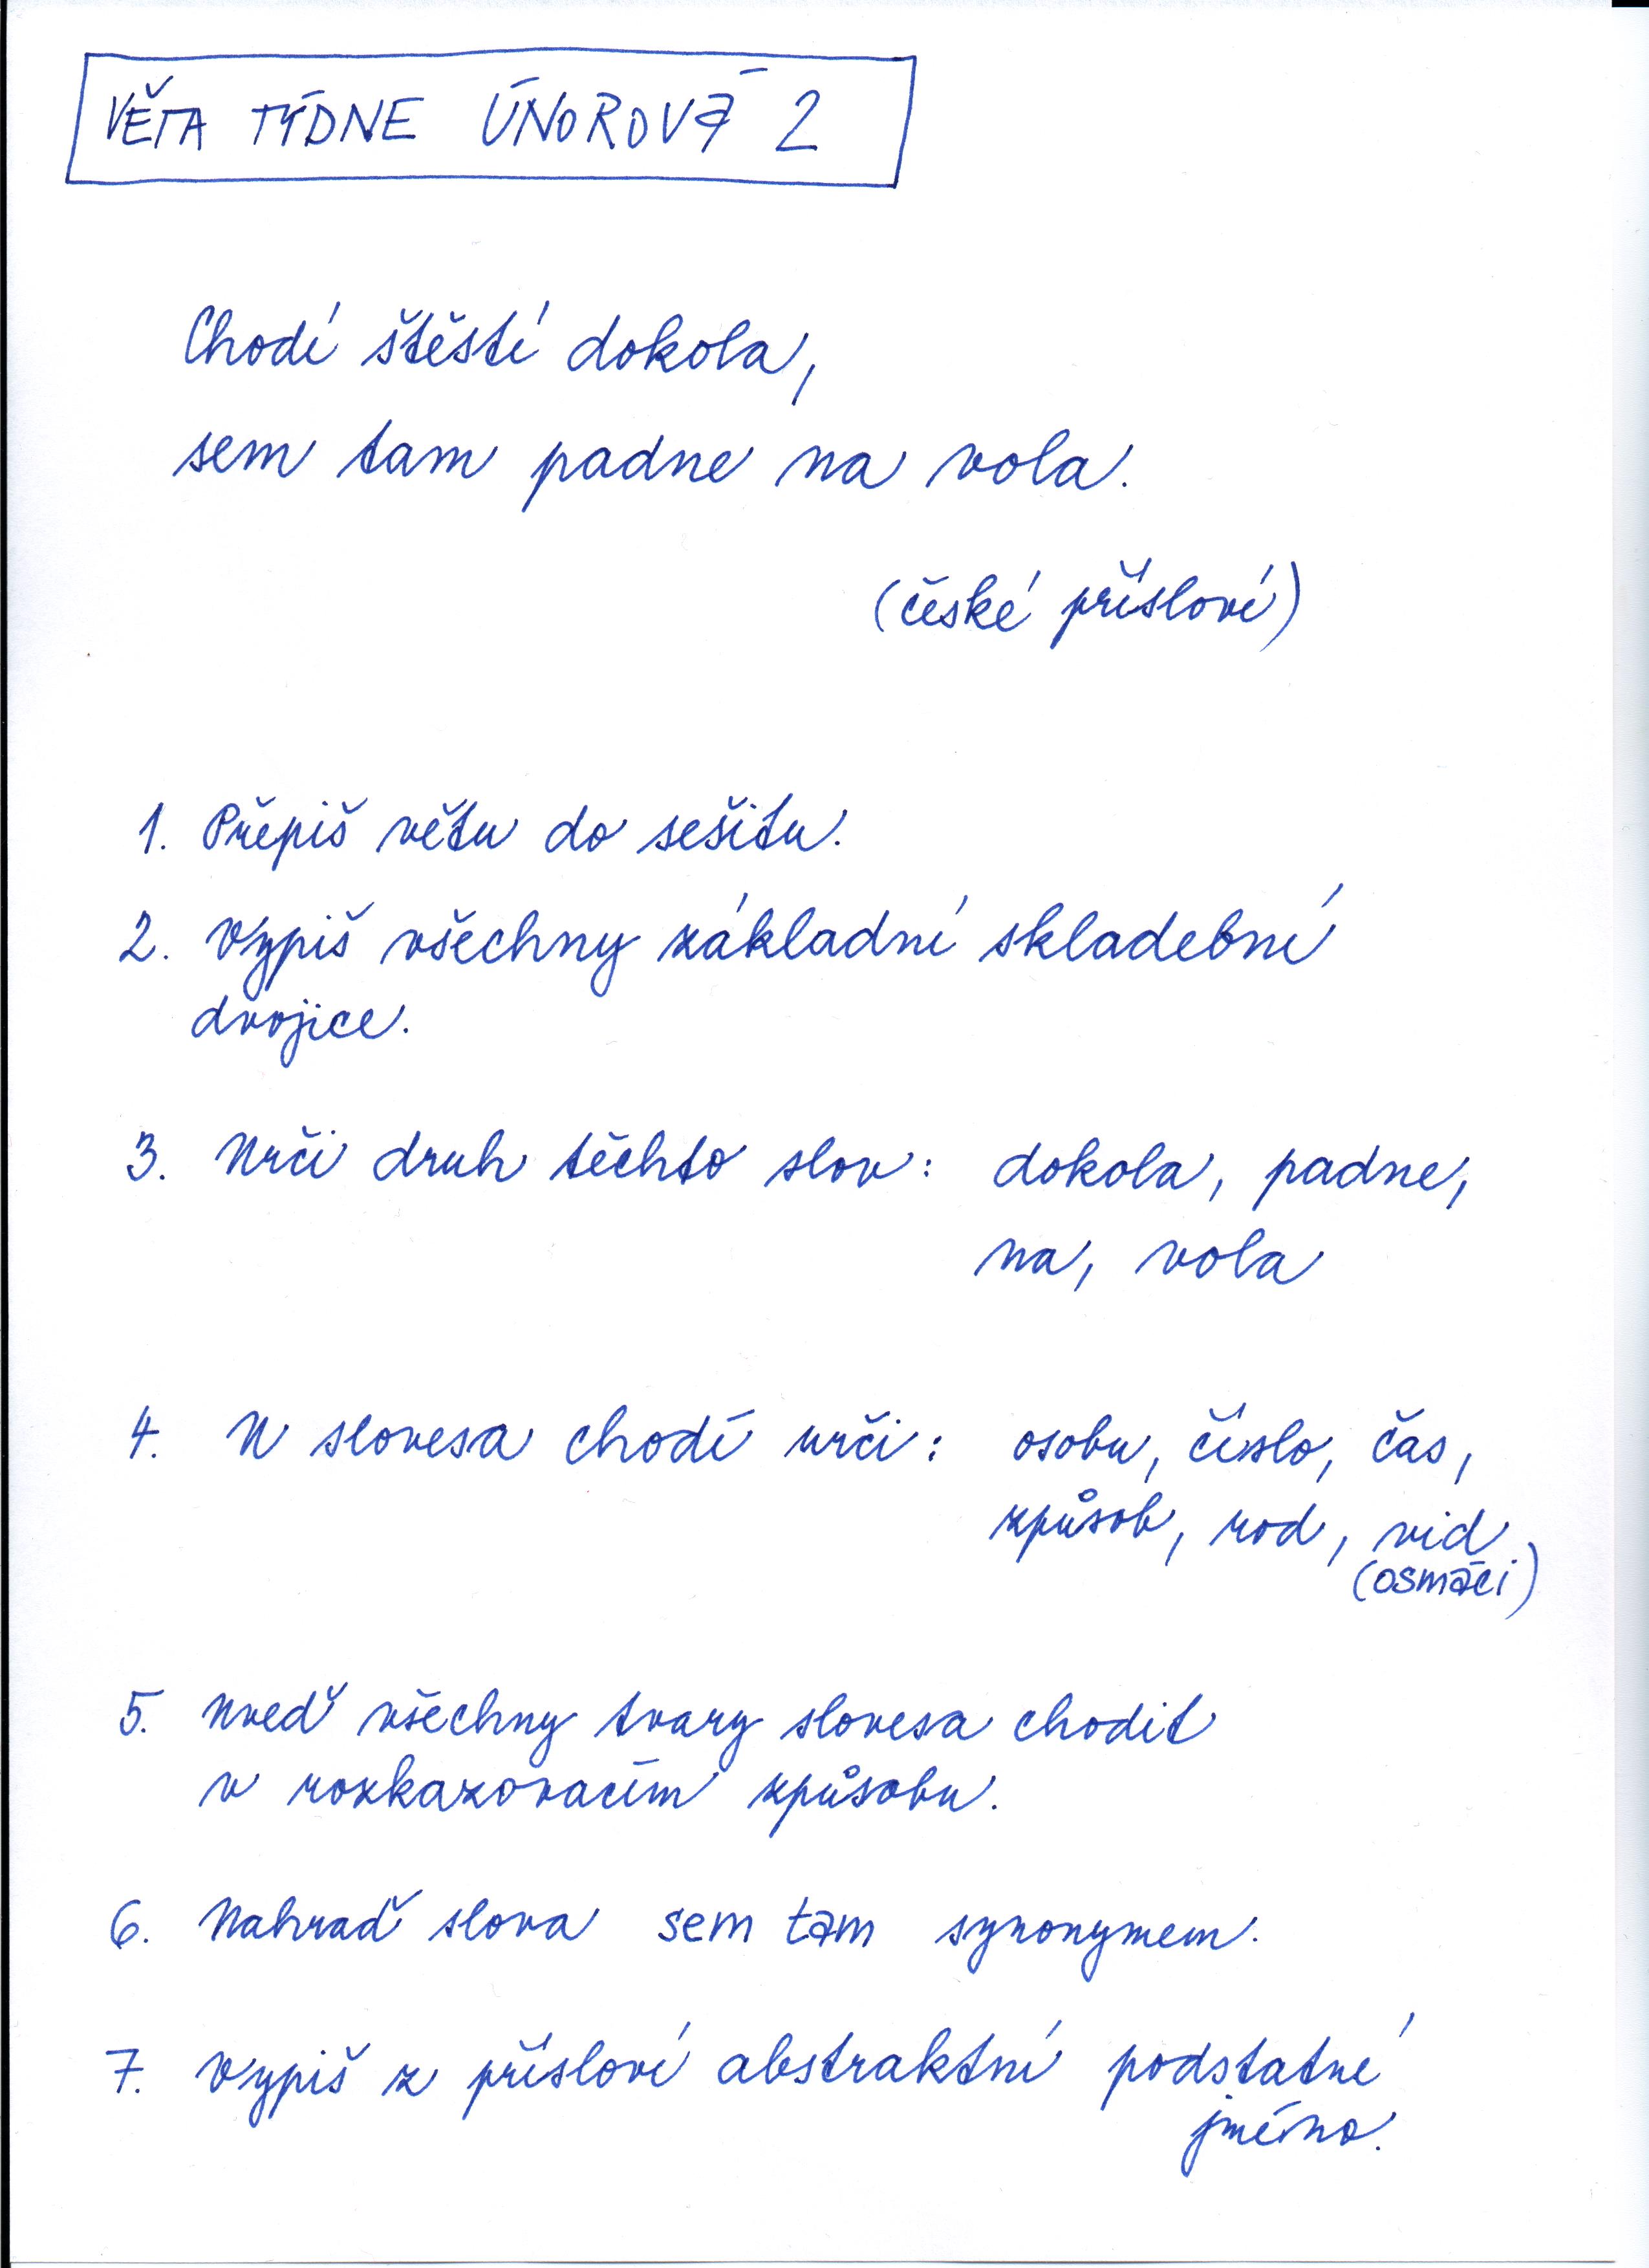 VĚTA TÝDNE ÚNOROVÁ 2
Chodí štěstí dokola,
sem tam padne na vola.
(české přísloví)
1. Přepiš větu do sešitu.
2. Vypiš všechny základní skladební
dvojice.
3. Urči druh těchto slov: dokola, padne,
na, vola
4. U slovesa chodí urči: osobu, číslo, čas,
způsob, rod, vid
(osmáci)
5. Uveď všechny tvary slovesa chodit
v rozkazovacím způsobu.
6. Nahraď slova sem tam synonymem.
7. Vypiš z přísloví abstraktní podstatné
jméno.